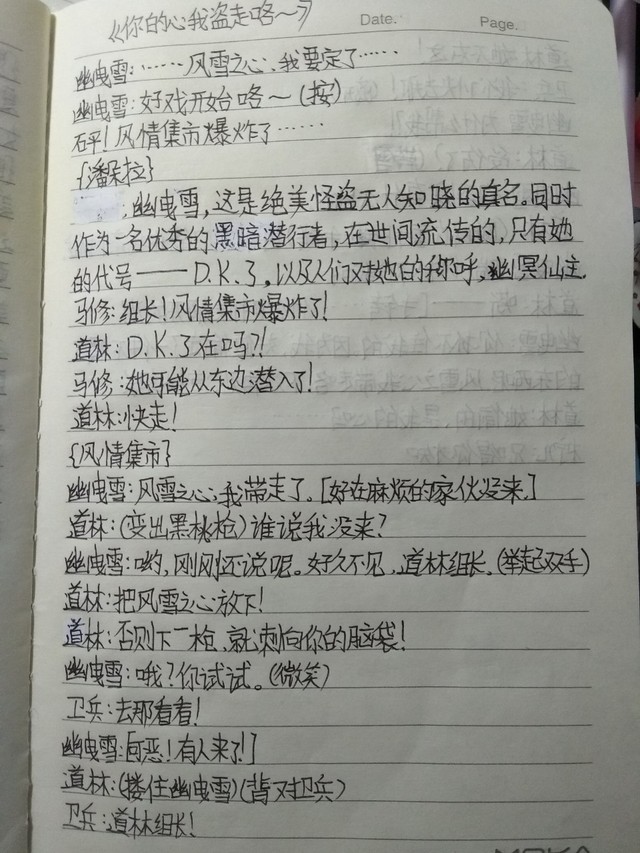 《你的心我盗走咯~》
Date.
Page.
幽曳雪:……风雪之心,我要定了……
幽曳雪:好戏开始咯~(按)
砰!风情集市爆炸了……
{潘朵拉}
:幽曳雪,这是绝美怪盗无人知晓的真名。同时
作为一名优秀的黑暗潜行者,在世间流传的,只有她
的代号——D.K.了,以及人们对她的称呼,幽冥仙主.
马修:组长!风情集市爆炸了!
道林:D.K.了在吗?!
马修:她可能从东边潜入了!
道林:快走!
{风情集市}
幽曳雪:风雪之心,我带走了。[好在麻烦的家伙没来.]
道林:(变出黑桃枪)谁说我没来?
幽曳雪:哟,刚刚还说呢。好久不见,道林组长.(举起双手)
道林:把风雪之心放下!
道林:否则下一枪,就刺向你的脑袋!
幽曳雪:哦?你试试。(微笑)
卫兵:去那看看!
幽曳雪:[可恶!有人来了!]
道林:(搂住幽曳雪)(背对卫兵)
卫兵:道林组长!